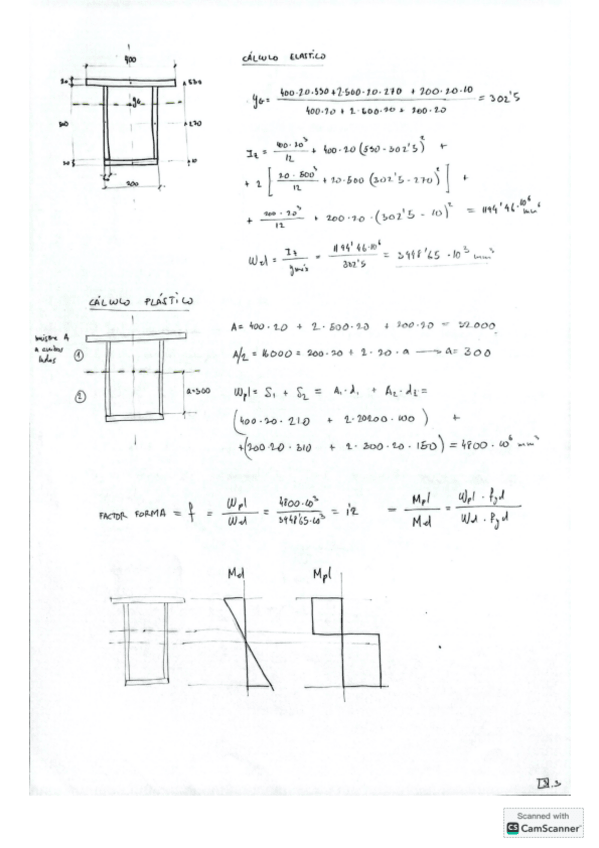 CÁLCULO ELASTICO
400
20
530
yG
500
270
20
10
200
yG = 400·20·530+2·500·20·270 + 200·20·10 = 302'5
400·20 + 2·600·20 + 200·20
Iz = 400·20³/12 + 400·20 (530-302'5)² +
+ 2 [ 20·500³/12 + 20·500 (302'5-270)² ] +
+ 200·20³/12 + 200·20·(302'5 - 10)² = 1194'46·10⁶ mm⁴
Wel = Iz/ymáx = 1194'46·10⁶/302'5 = 3948'65·10³ mm³
CÁLCULO PLÁSTICO
misma A
a ambos
lados
①
②
a=300
A = 400·20 + 2·500·20 + 200·20 = 32.000
A/2 = 16000 = 200·20 + 2·20·a → a = 300
Wpl = S1 + S2 = A1·d1 + A2·d2 =
(400·20·210 + 2·20200·100) +
+(200·20·310 + 2·300·20·150) = 4800·10⁶ mm³
FACTOR FORMA = f = Wpl/Wel = 4800·10³/3948'65·10³ = 1'2 = Mpl/Mel = Wpl·fyd/Wel·fyd
Mel
Mpl
.3
Scanned with
CS CamScanner